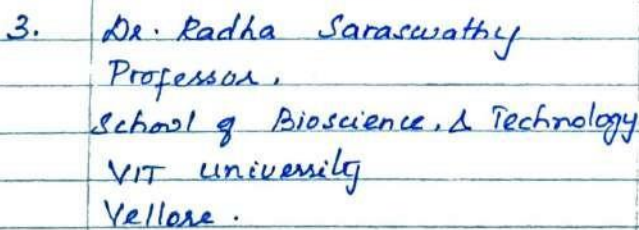 3. Dr. Radha Saraswathy
Professor.
School of Bioscience, & Technology
VIT University
Vellore.